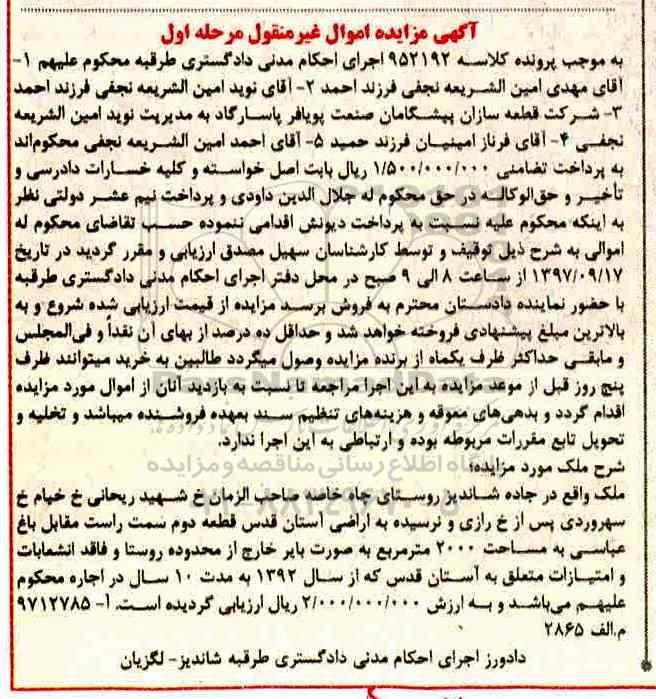 آگهی مزایده اموال غیرمنقول مرحله اول
به موجب پرونده کلاسه ۹۵۲۱۹۲ اجرای احکام مدنی دادگستری طرقبه محکوم علیهم ۱-
آقای مهدی امین الشریعه نجفی فرزند احمد ۲- آقای نوید امین الشریعه نجفی فرزند احمد
۳- شرکت قطعه سازان پیشگامان صنعت پویافر پاسارگاد به مدیریت نوید امین الشریعه
نجفی ۴- آقای فرناز امینیان فرزند حمید ۵- آقای احمد امین الشریعه نجفی محکوم‌اند
به پرداخت تضامنی ۱/۵۰۰/۰۰۰/۰۰۰ ریال بابت اصل خواسته و کلیه خسارات دادرسی و
تأخیر و حق‌الوکاله در حق محکوم له جلال الدین داودی و پرداخت نیم عشر دولتی نظر
به اینکه محکوم علیه نسبت به پرداخت دیونش اقدامی ننموده حسب تقاضای محکوم له
اموالی به شرح ذیل توقیف و توسط کارشناسان سهیل مصدق ارزیابی و مقرر گردید در تاریخ
۱۳۹۷/۰۹/۱۷ از ساعت ۸ الی ۹ صبح در محل دفتر اجرای احکام مدنی دادگستری طرقبه
با حضور نماینده دادستان محترم به فروش برسد مزایده از قیمت ارزیابی شده شروع و به
بالاترین مبلغ پیشنهادی فروخته خواهد شد و حداقل ده درصد از بهای آن نقداً و فی‌المجلس
و مابقی حداکثر ظرف یکماه از برنده مزایده وصول میگردد طالبین به خرید میتوانند ظرف
پنج روز قبل از موعد مزایده به این اجرا مراجعه تا نسبت به بازدید آنان از اموال مورد مزایده
اقدام گردد و بدهی‌های معوقه و هزینه‌های تنظیم سند بعهده فروشنده میباشد و تخلیه و
تحویل تابع مقررات مربوطه بوده و ارتباطی به این اجرا ندارد.
شرح ملک مورد مزایده؛
ملک واقع در جاده شاندیز روستای چاه خاصه صاحب الزمان خ شهید ریحانی خ خیام خ
سهروردی پس از خ رازی و نرسیده به اراضی آستان قدس قطعه دوم سمت راست مقابل باغ
عباسی به مساحت ۲۰۰۰ مترمربع به صورت بایر خارج از محدوده روستا و فاقد انشعابات
و امتیازات متعلق به آستان قدس که از سال ۱۳۹۲ به مدت ۱۰ سال در اجاره محکوم
علیهم می‌باشد و به ارزش ۲/۰۰۰/۰۰۰/۰۰۰ ریال ارزیابی گردیده است. آ- ۹۷۱۲۷۸۵
م.الف ۲۸۶۵
دادورز اجرای احکام مدنی دادگستری طرقبه شاندیز- لگزیان